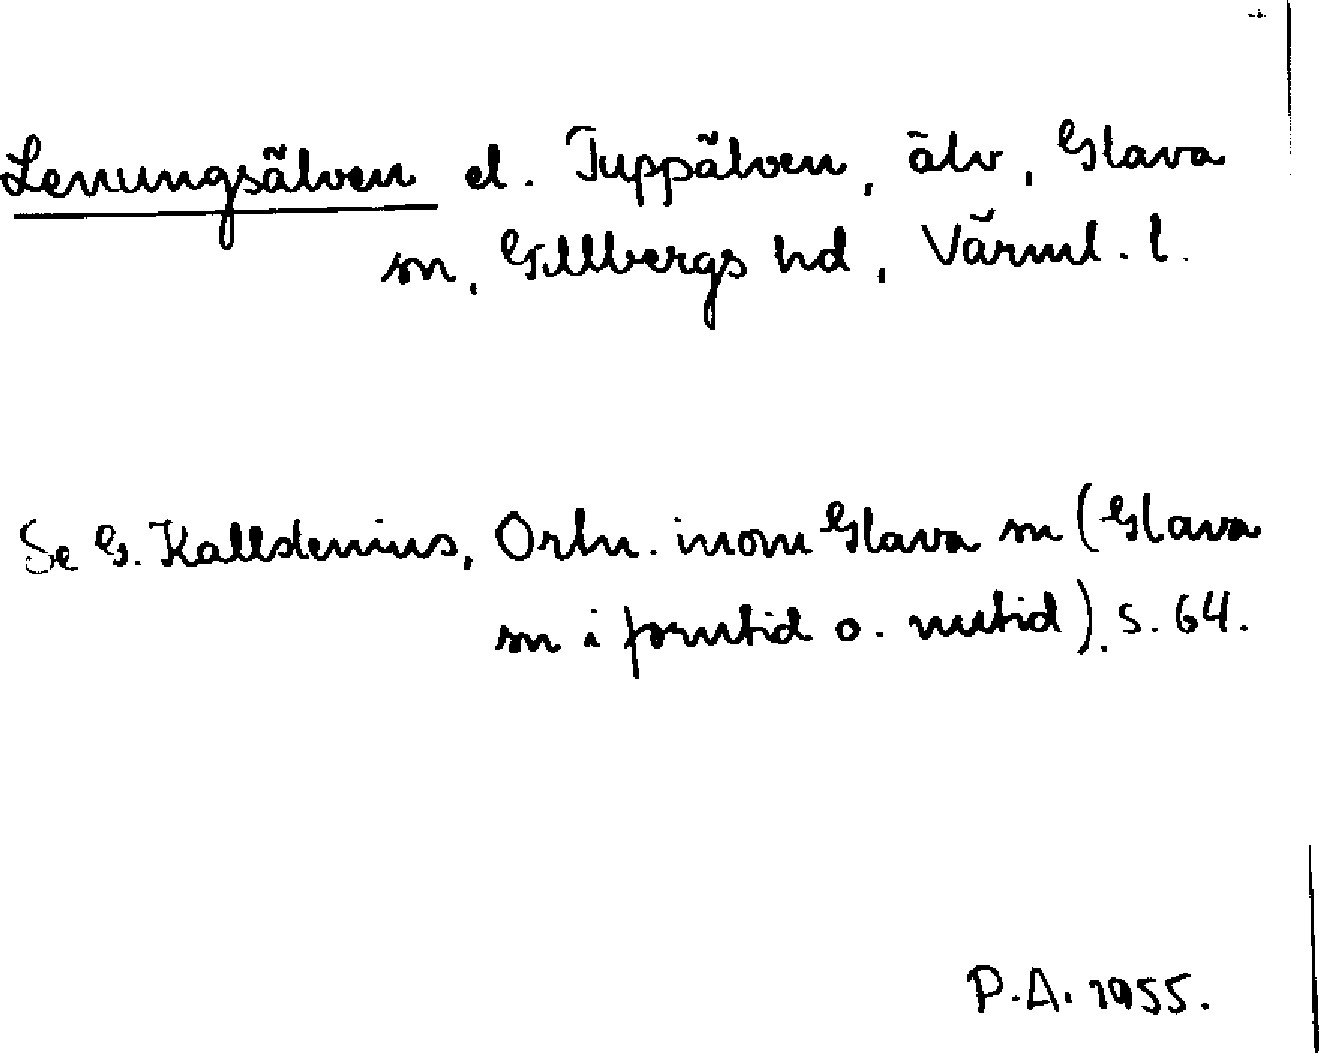 Lenungsälven el. Tuppälven, älv, Glava
sn, Gillbergs hd, Värml. l.
Se G. Kallstenius, Ortn. inom Glava sn (Glava
sn i forntid o. nutid). s. 64.
P.A. 1955.